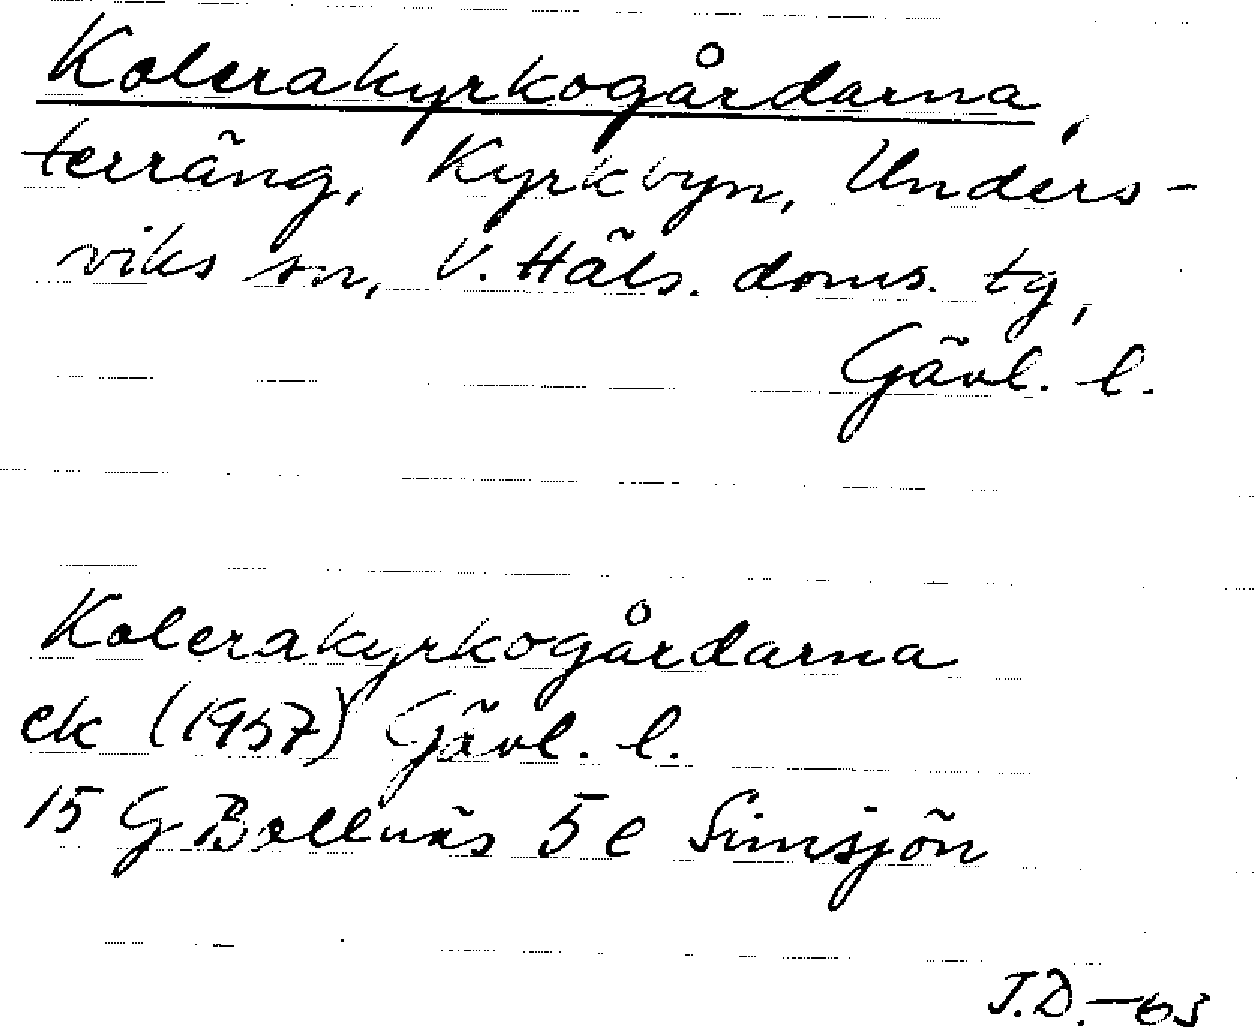 Kolerakyrkogårdarna,
terräng, Kyrkbyn, Unders-
viks sn, V. Häls. doms. tg,
Gävl. l.
Kolerakyrkogårdarna
ek (1957) Gävl. l.
15 G Bollnäs 5 e Simsjön
J.D.-63